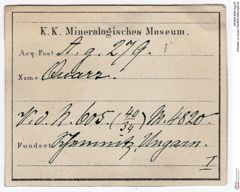 K. K. Mineralogisches Museum.
Acq. Post A. g. 279.
Name Quarz.
V. d. N. 605. (40/34) M. 4820.
Fundort Schemnitz, Ungarn.
I